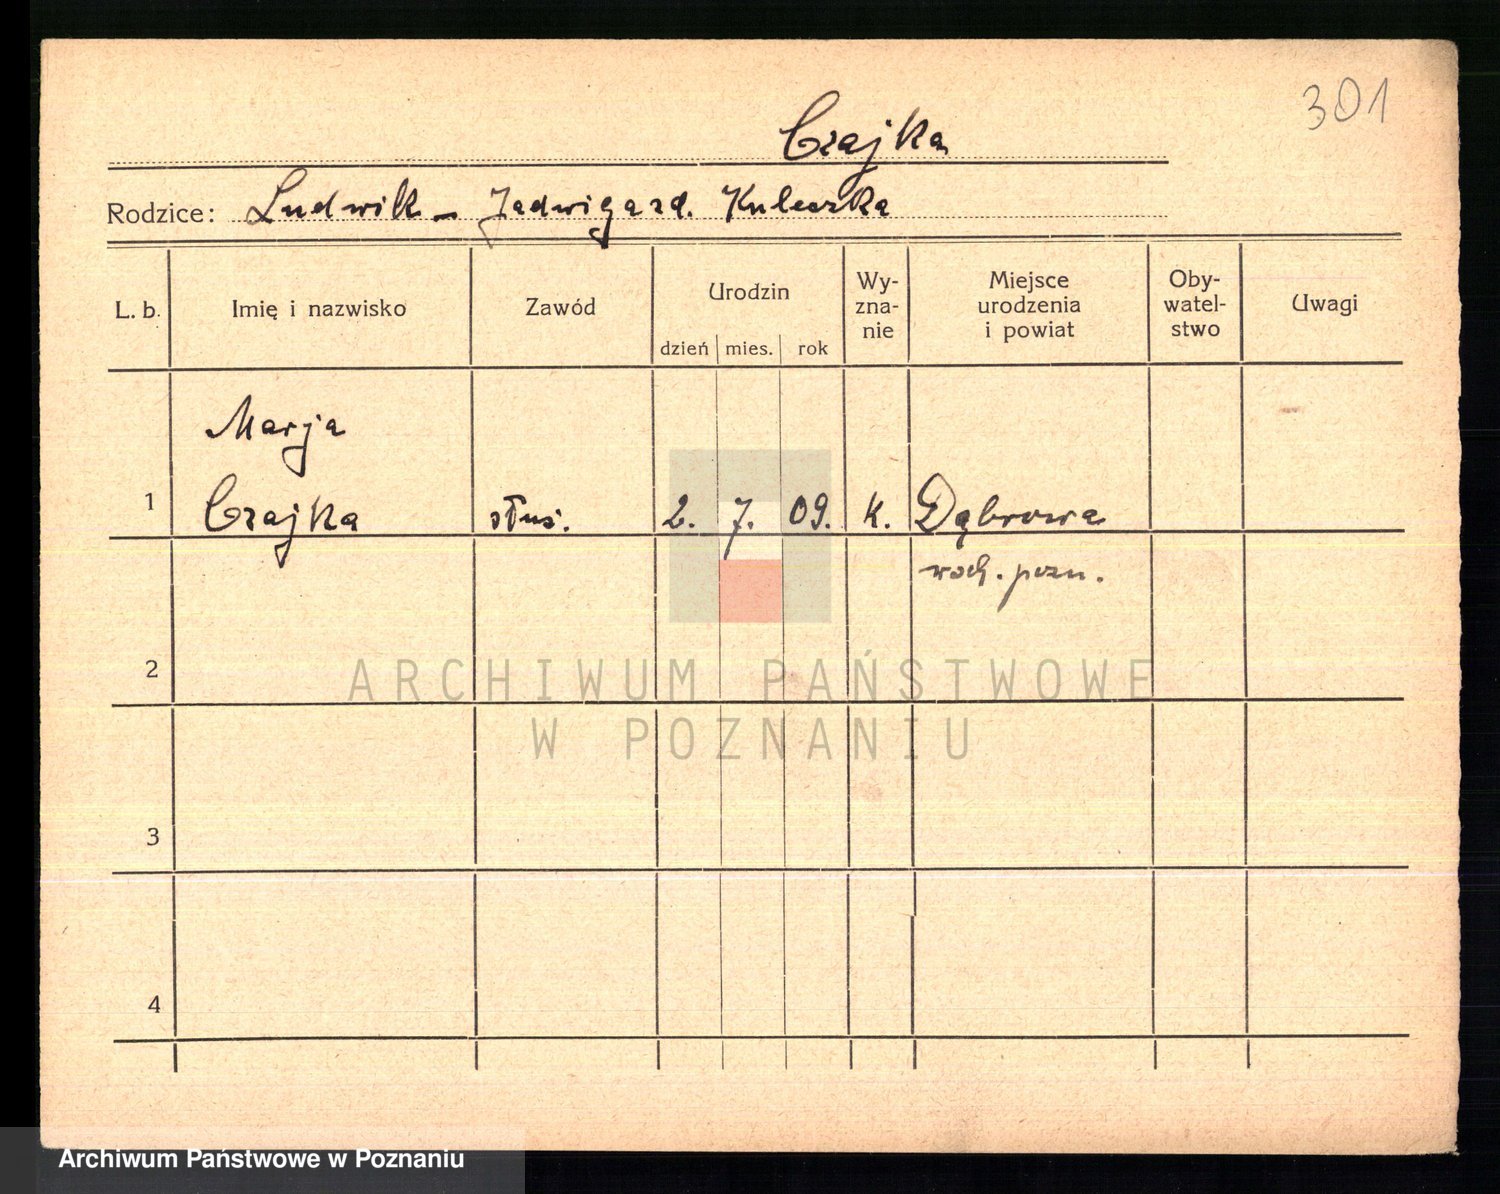 301
Czajka
Rodzice: Ludwik – Jadwiga zd. Kuleczka
L. b. Imię i nazwisko Zawód Urodzin dzień mies. rok Wyznanie Miejsce urodzenia i powiat Obywatelstwo Uwagi
Marja
1 Czajka służ. 2. 7. 09. k. Dąbrowa
woj. pozn.
2
ARCHIWUM PAŃSTWOWE
W POZNANIU
3
4
Archiwum Państwowe w Poznaniu